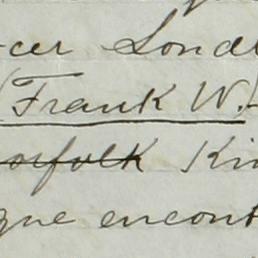 cer Lond
(Frank W.
orfolk Kin
gne encont